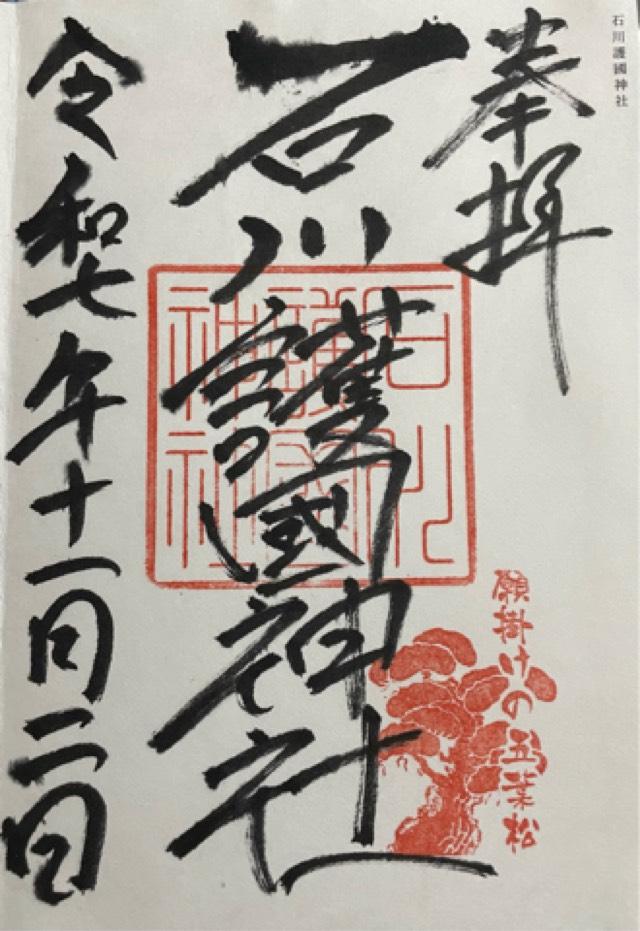 石川護國神社
奉拝
石川護國神社
令和七年十一月二日
石川
護國
神社
願掛けの五葉松